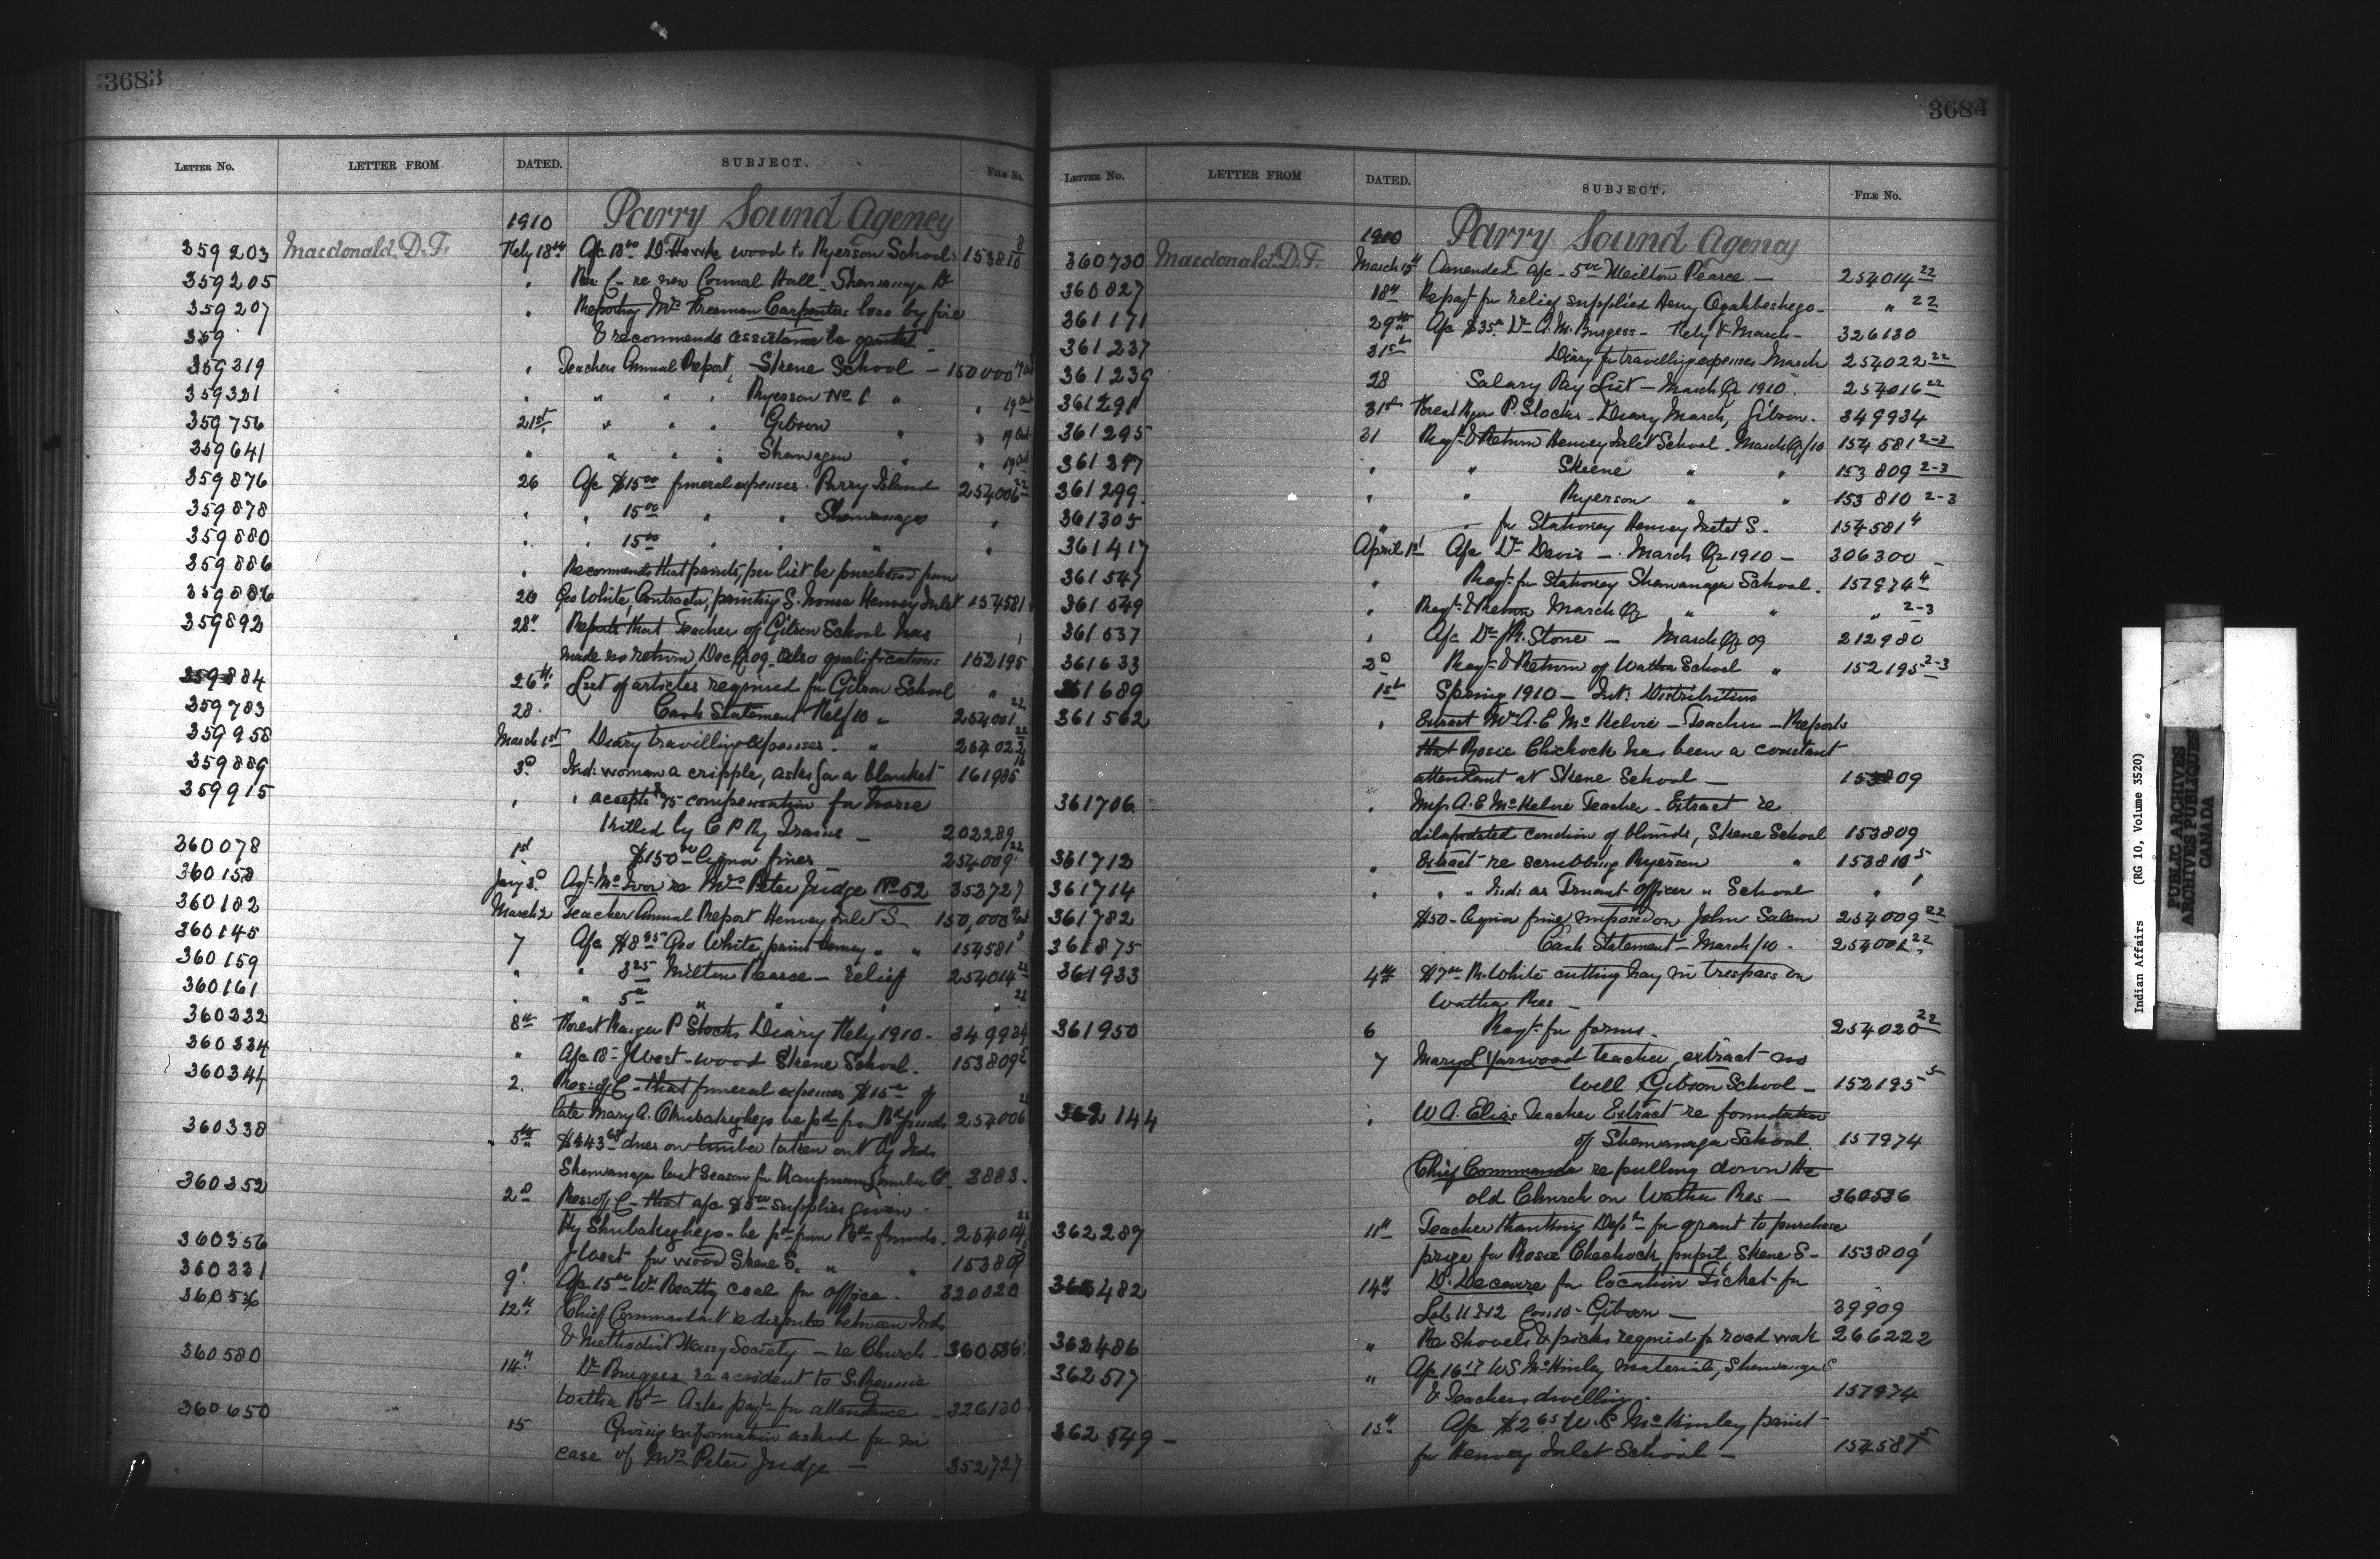 3683
LETTER NO. LETTER FROM DATED. SUBJECT. FILE No.
1910 Parry Sound Agency
359203 Macdonald D.F. Feby 18th A/c 18.00 D. Hawke wood to Ryerson School 153810 8/10
359205 " Res. C - re new Council Hall - Shawanaga Bd
359207 " Reporting Mrs Freeman Carpenters loss by fire
359 & recommends assistance be granted
359319 " Teachers Annual Report, Skene School - 150000 19 Oct
359321 " " " " Ryerson No 1 " " 19 Oct
359756 21st " " " Gibson " " 19 Oct
359641 " " " " Shawagen " " 19 Oct
359876 26 A/c $15.00 funeral expenses. Parry Island 254006 22
359878 " " 15.00 " " Shawanaga "
359880 " " 15.00 " " " "
359886 " Recommends that paints, per list be purchased from
359886 26 Geo White, Contractor, painting S. house Henvey Inlet 154581
359892 28" Reports that Teacher of Gibson School has
made no return Dec Qr 09. Also qualifications 152195 1
359884 26th List of articles required for Gibson School "
359783 28. Cash Statement Feb/10 " 254001 22
359958 March 1st Diary travelling expenses. " 254022 22
359889 3d Ind: woman a cripple, asks for a blanket 161985 16
359915 " " accepts $75 compensation for horse
killed by C P Ry Trains - 202289
360078 1st $150.00 liquor fines 254009 22
360158 Jany 3d Agt McIvor re Mrs Peter Judge No 52 353727
360182 March 2 Teacher Annual Report Henvey Inlet S - 150,000 9 Oct
360145 7 A/c $8.95 Geo White, paint Henvey " " 154581 5
360159 " " 3.25 Milton Pearce - relief 254014 22
360161 " " 5.00 " " " " 22
360332 8th Forest Ranger P Stocks Diary Feby 1910 - 349934
360334 " A/c 18- J West - wood Skene School. 153809 5
360344 2. Res: of C - that funeral expenses $15.00 of
late Mary A. Chubakeghego be pd from Bd funds 254006 22
360338 " 5th $343.68 dues on timber taken out by Inds
Shawanaga last Season for Kaufmann Lumber C. 3883.
360352 2d Res: of C - that a/c $5.00 supplies given
Hy Shubakeghego - be pd from Bd funds. 254014 22
360356 J West for wood Skene S. " " 153809 5
360331 9" A/c 15.00 Wm Beatty coal for office. 320020
360536 12th Chief Commandant re disputes between Inds
& Methodist Missy Society - re Church 360536
360580 14" Dr Burgess re accident to S. Rennie
Watha Bd - Asks payt for attendance - 326130
360650 15 Giving information asked for in
case of Mrs Peter Judge - 352727
3684
LETTER NO. LETTER FROM DATED. SUBJECT. FILE No.
1910 Parry Sound Agency
360730 Macdonald D.F. March 15th Amended a/c - 5.00 Milton Pearce - 254014 22
360827 18th Reqt for relief supplied Henry Ogahbeshego - " 22
361171 29th A/c $35.00 Dr A.M. Burgess - Feby & March - 326130
361237 31st Diary for travelling expenses March 254022 22
361239 28 Salary Pay List - March Qr 1910. 254016 22
361291 31st Forest Rgr P. Stocks - Diary March, Gibson. 349934
361295 31 Reqt & Return Henvey Inlet School - March Qr/10 154581 2-3
361297 " " Skene " " 153809 2-3
361299 " " Ryerson " " 153810 2-3
361305 " " for Stationery Henvey Inlet S. 154581 4
361417 April 1st A/c Dr Davis - March Qr 1910 - 306300
361547 " Reqt for Stationery Shawanaga School. 157974 4
361549 " Reqt & Return March Qr " " " 2-3
361537 " A/c Dr J.R. Stone - March Qr 09 212980
361633 2d Reqt & Return of Watha School " 152195 2-3
361689 1st Spring 1910 - Int: Distribution
361562 " Extract Mrs A.E McKelvie - Teacher - Reports
that Rosie Chechock has been a constant
attendant at Skene School - 153809
361706 " Mrs A.E McKelvie Teacher - Extract re
dilapidated condition of blinds, Skene School 153809
361712 " Extract re scrubbing Ryerson " 153810 5
361714 " " " Ind: as Truant Officer " School " 1
361782 $50 - liquor fine imposed on John Salem 254009 22
361875 Cash Statement - March/10 - 254001 22
361933 4th $7.00 R. White cutting hay in trespass on
Watha Res -
361950 6 Reqt for forms. 254020 22
7 Mary L Yarwood teacher, extract - no
Well Gibson School - 152195 5
362144 " W A. Elias Teacher Extract re foundation
of Shawanaga School. 157974
Chief Commanda re pulling down the
old Church on Watha Res - 360536
362289 11th Teacher thanking Dept for grant to purchase
prize for Rosie Chechock pupil Skene S - 153809 1
362482 14th D. Decaire for location Ticket for
Lots 11 & 12 Con: 10 - Gibson - 39909
362486 " Re shovels & picks required for road work 266222
362577 " A/c 16.17 W S McKinley material, Shawanaga S
& Teachers dwelling. 157974
362549 - 15th A/c $2.65 W.S McKinley paint
for Henvey Inlet School - 154581 5
Indian Affairs (RG 10, Volume 3520)
PUBLIC ARCHIVES
ARCHIVES PUBLIQUES
CANADA